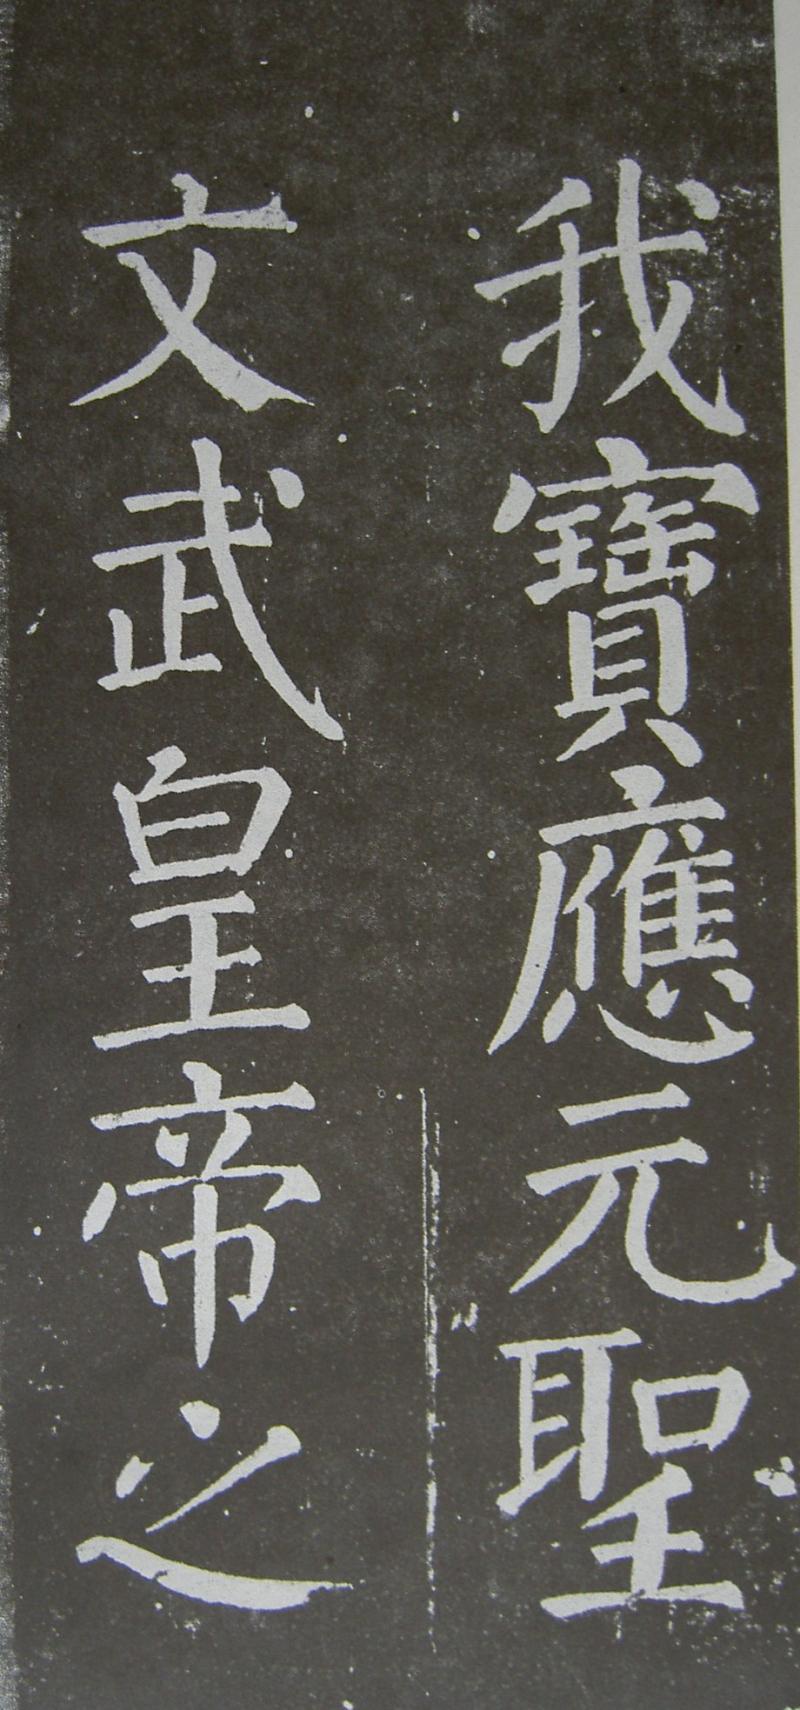 我寶應元聖
文武皇帝之